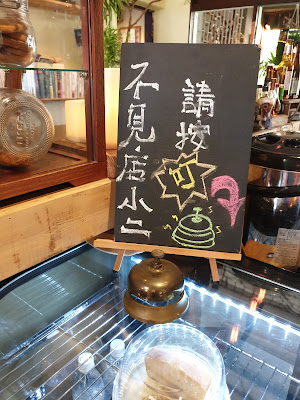 不見店小二
請按
叮